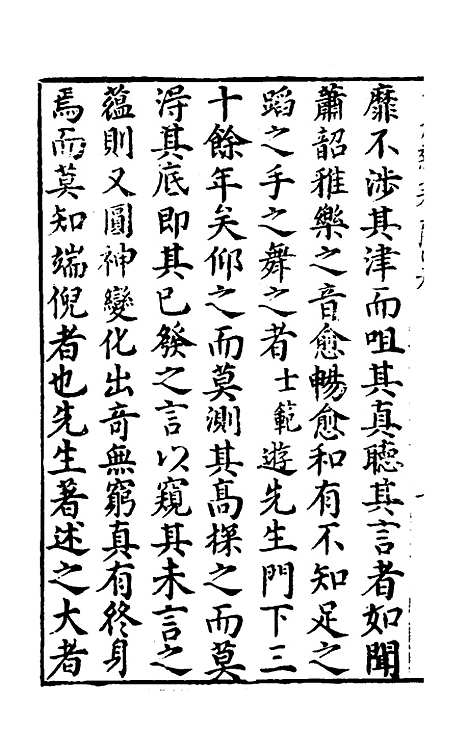 靡不涉其津而咀其真聽其言者如聞
蕭韶雅樂之音愈暢愈和有不知足之
蹈之手之舞之者士範遊先生門下三
十餘年矣仰之而莫測其高探之而莫
得其底即其已發之言以窺其未言之
蘊則又圓神變化出奇無窮真有終身
焉而莫知端倪者也先生著述之大者